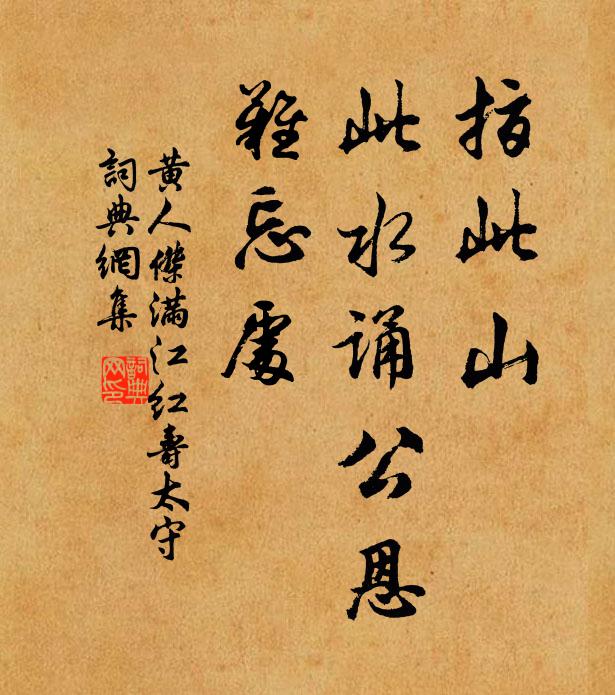 指此山
此水诵公恩
難忘處
黄人傑满江红壽太守
詞典網集
詞典网印